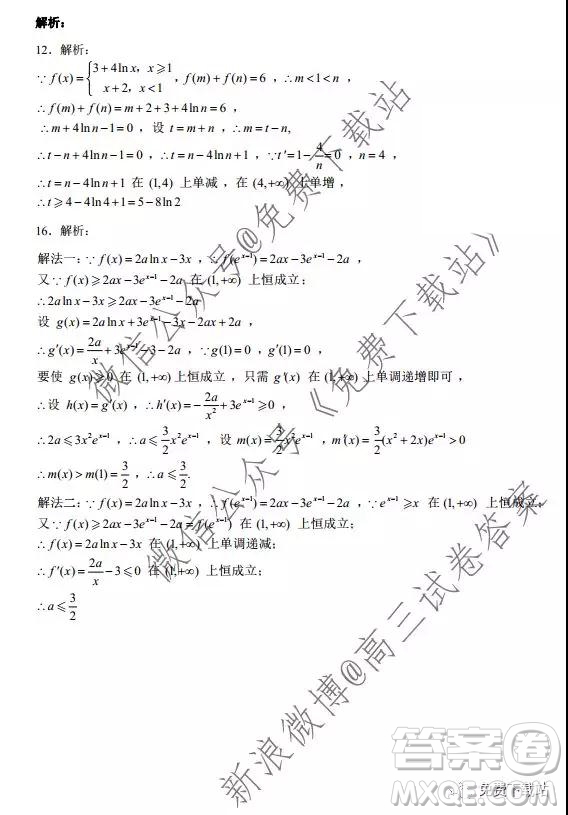 解析：
12．解析：
∵ f(x)={3+4ln x, x⩾1; x+2, x<1 , f(m)+f(n)=6 ，∴m<1<n ，
∴f(m)+f(n)=m+2+3+4ln n=6 ，
∴m+4ln n−1=0 ，设 t=m+n ，∴m=t−n,
∴t−n+4ln n−1=0 ，∴t=n−4ln n+1 ，∵t′=1−4/n=0 ，n=4 ，
∴t=n−4ln n+1 在 (1,4) 上单减 ，在 (4,+∞) 上单增 ，
∴t⩾4−4ln 4+1=5−8ln 2
16．解析：
解法一：∵ f(x)=2a ln x−3x ，∴f(e^{x−1})=2ax−3e^{x−1}−2a ，
又∵f(x)⩾2ax−3e^{x−1}−2a 在 (1,+∞) 上恒成立；
∴2a ln x−3x⩾2ax−3e^{x−1}−2a
设 g(x)=2a ln x+3e^{x−1}−3x−2ax+2a ，
∴g′(x)=2a/x+3e^{x−1}−3−2a ，∵g(1)=0 ，g′(1)=0 ，
要使 g(x)⩾0 在 (1,+∞) 上恒成立 ，只需 g′(x) 在 (1,+∞) 上单调递增即可 ，
∴设 h(x)=g′(x) ，∴h′(x)=−2a/x²+3e^{x−1}⩾0 ，
∴2a⩽3x²e^{x−1} ，∴a⩽3/2 x²e^{x−1} ，设 m(x)=3/2 x²e^{x−1} ，m′(x)=3/2(x²+2x)e^{x−1}>0
∴m(x)>m(1)=3/2 ，∴a⩽3/2.
解法二：∵f(x)=2a ln x−3x ，∴f(e^{x−1})=2ax−3e^{x−1}−2a ，∵e^{x−1}⩾x 在 (1,+∞) 上恒成立；
又∵f(x)⩾2ax−3e^{x−1}−2a=f(e^{x−1}) 在 (1,+∞) 上恒成立；
∴f(x)=2a ln x−3x 在 (1,+∞) 上单调递减；
∴f′(x)=2a/x−3⩽0 在 (1,+∞) 上恒成立；
∴a⩽3/2
微信公众号@免费下载站
微信公众号《免费下载站》
新浪微博@高三试卷答案
答案圈
MXQE.COM
免费下载站